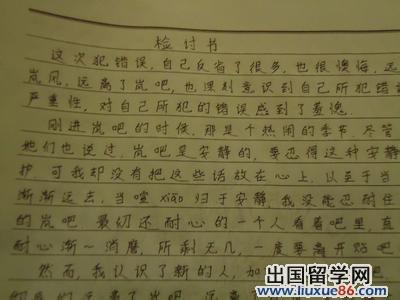 检讨书
这次犯错误,自己反省了很多,也很懊悔,远
岚风,远离了岚吧,也深刻意识到自己所犯错误
严重性,对自己所犯的错误感到了羞愧
刚进岚吧的时候,那是个热闹的季节.尽管
她们也说过,岚吧是安静的,要忍得这种安静
护,可我却没有把这些话放在心上,以至于当
渐渐远去,当喧xiāo归于安静,我没能忍耐住
的岚吧,最初还耐心的一个人看着吧里,直
耐心渐一消磨,所剩无几,一度要离开贴吧
然而,我认识了新的人,加
的远离了岚吧,远离
出国留学网
www.liuxue86.com